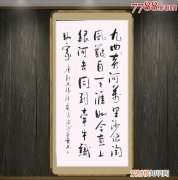 7788.com
九曲黄河萬里沙浪淘
風簸自天涯如今直上
銀河去同到牽牛織
女家